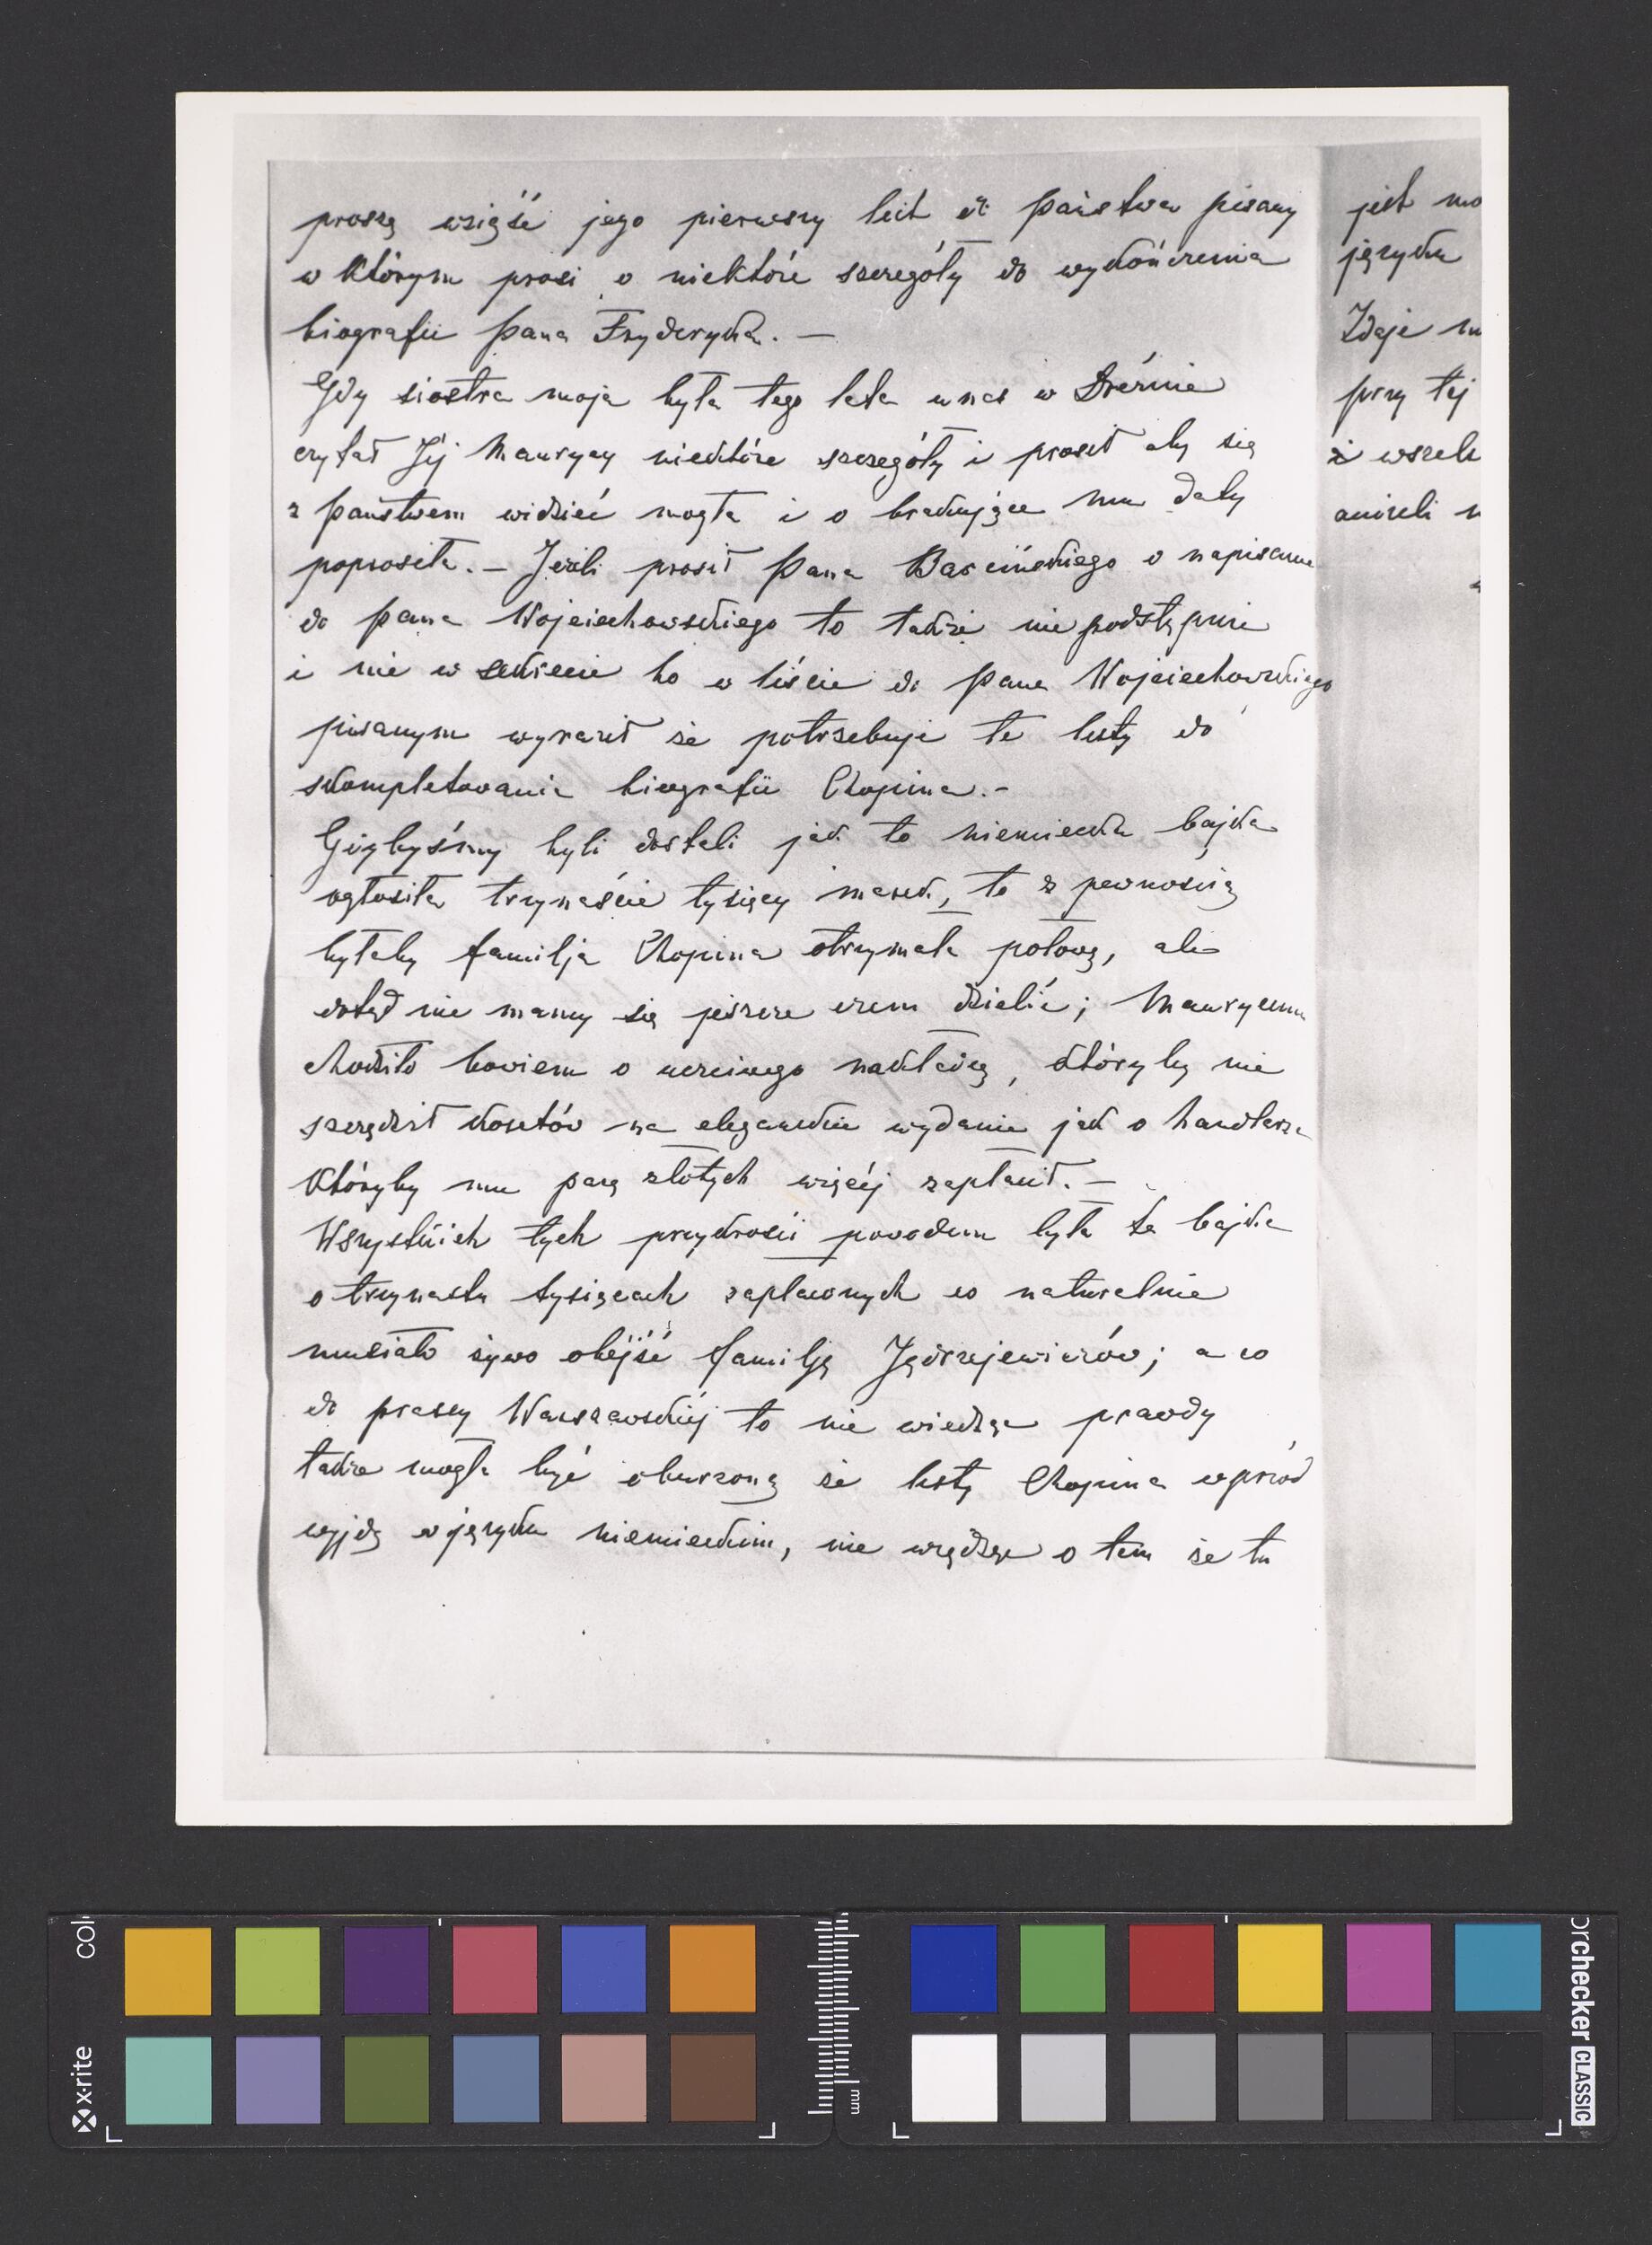 proszę wziąść jego pierwszy list do Państwa pisany
w którym prosi o niektóre szczegóły do wykończenia
biografii Pana Fryderyka. —
Gdy siostra moja była tego lata u nas w Dreźnie
czytał Jéj Maurycy niektóre szczegóły i prosił aby się
z Państwem widzieć mogła i o brakujące mu daty
poprosiła. — Jeżli prosił Pana Barcińskiego o napisanie
do pana Wojciechowskiego to także nie podstępnie
i nie w sekrecie bo w liście do Pana Wojciechowskiego
pisanym wyraził że potrzebuje te listy do
skompletowania biografii Chopina. —
Gdybyśmy byli dostali jak to niemiecka bajka
ogłosiła trzynaście tysięcy marek, to z pewnością
byłaby familja Chopina otrzymała połowę, ale
dotąd nie mamy się jeszcze czem dzielić; Maurycemu
chodziło bowiem o uczciwego nakładcę, któryby nie
szczędził kosztów na eleganckie wydanie jak o handlarza
któryby mu parę złotych więcéj zapłacił. —
Wszystkich tych przykrości powodem była ta bajka
o trzynastu tysiącach zapłaconych co naturalnie
musiało żywo obejść familję Jędrzejewiczów; a co
do prasy Warszawskiéj to nie wiedząc prawdy
także mogła być oburzoną że listy Chopina wprzód
wyjdą w języku niemieckim, nie wiedząc o tem że tu
jest mo
języku
Zdaje m
przy tej
i wszelk
aniżeli n
col
x-rite
mm
orchecker CLASSIC